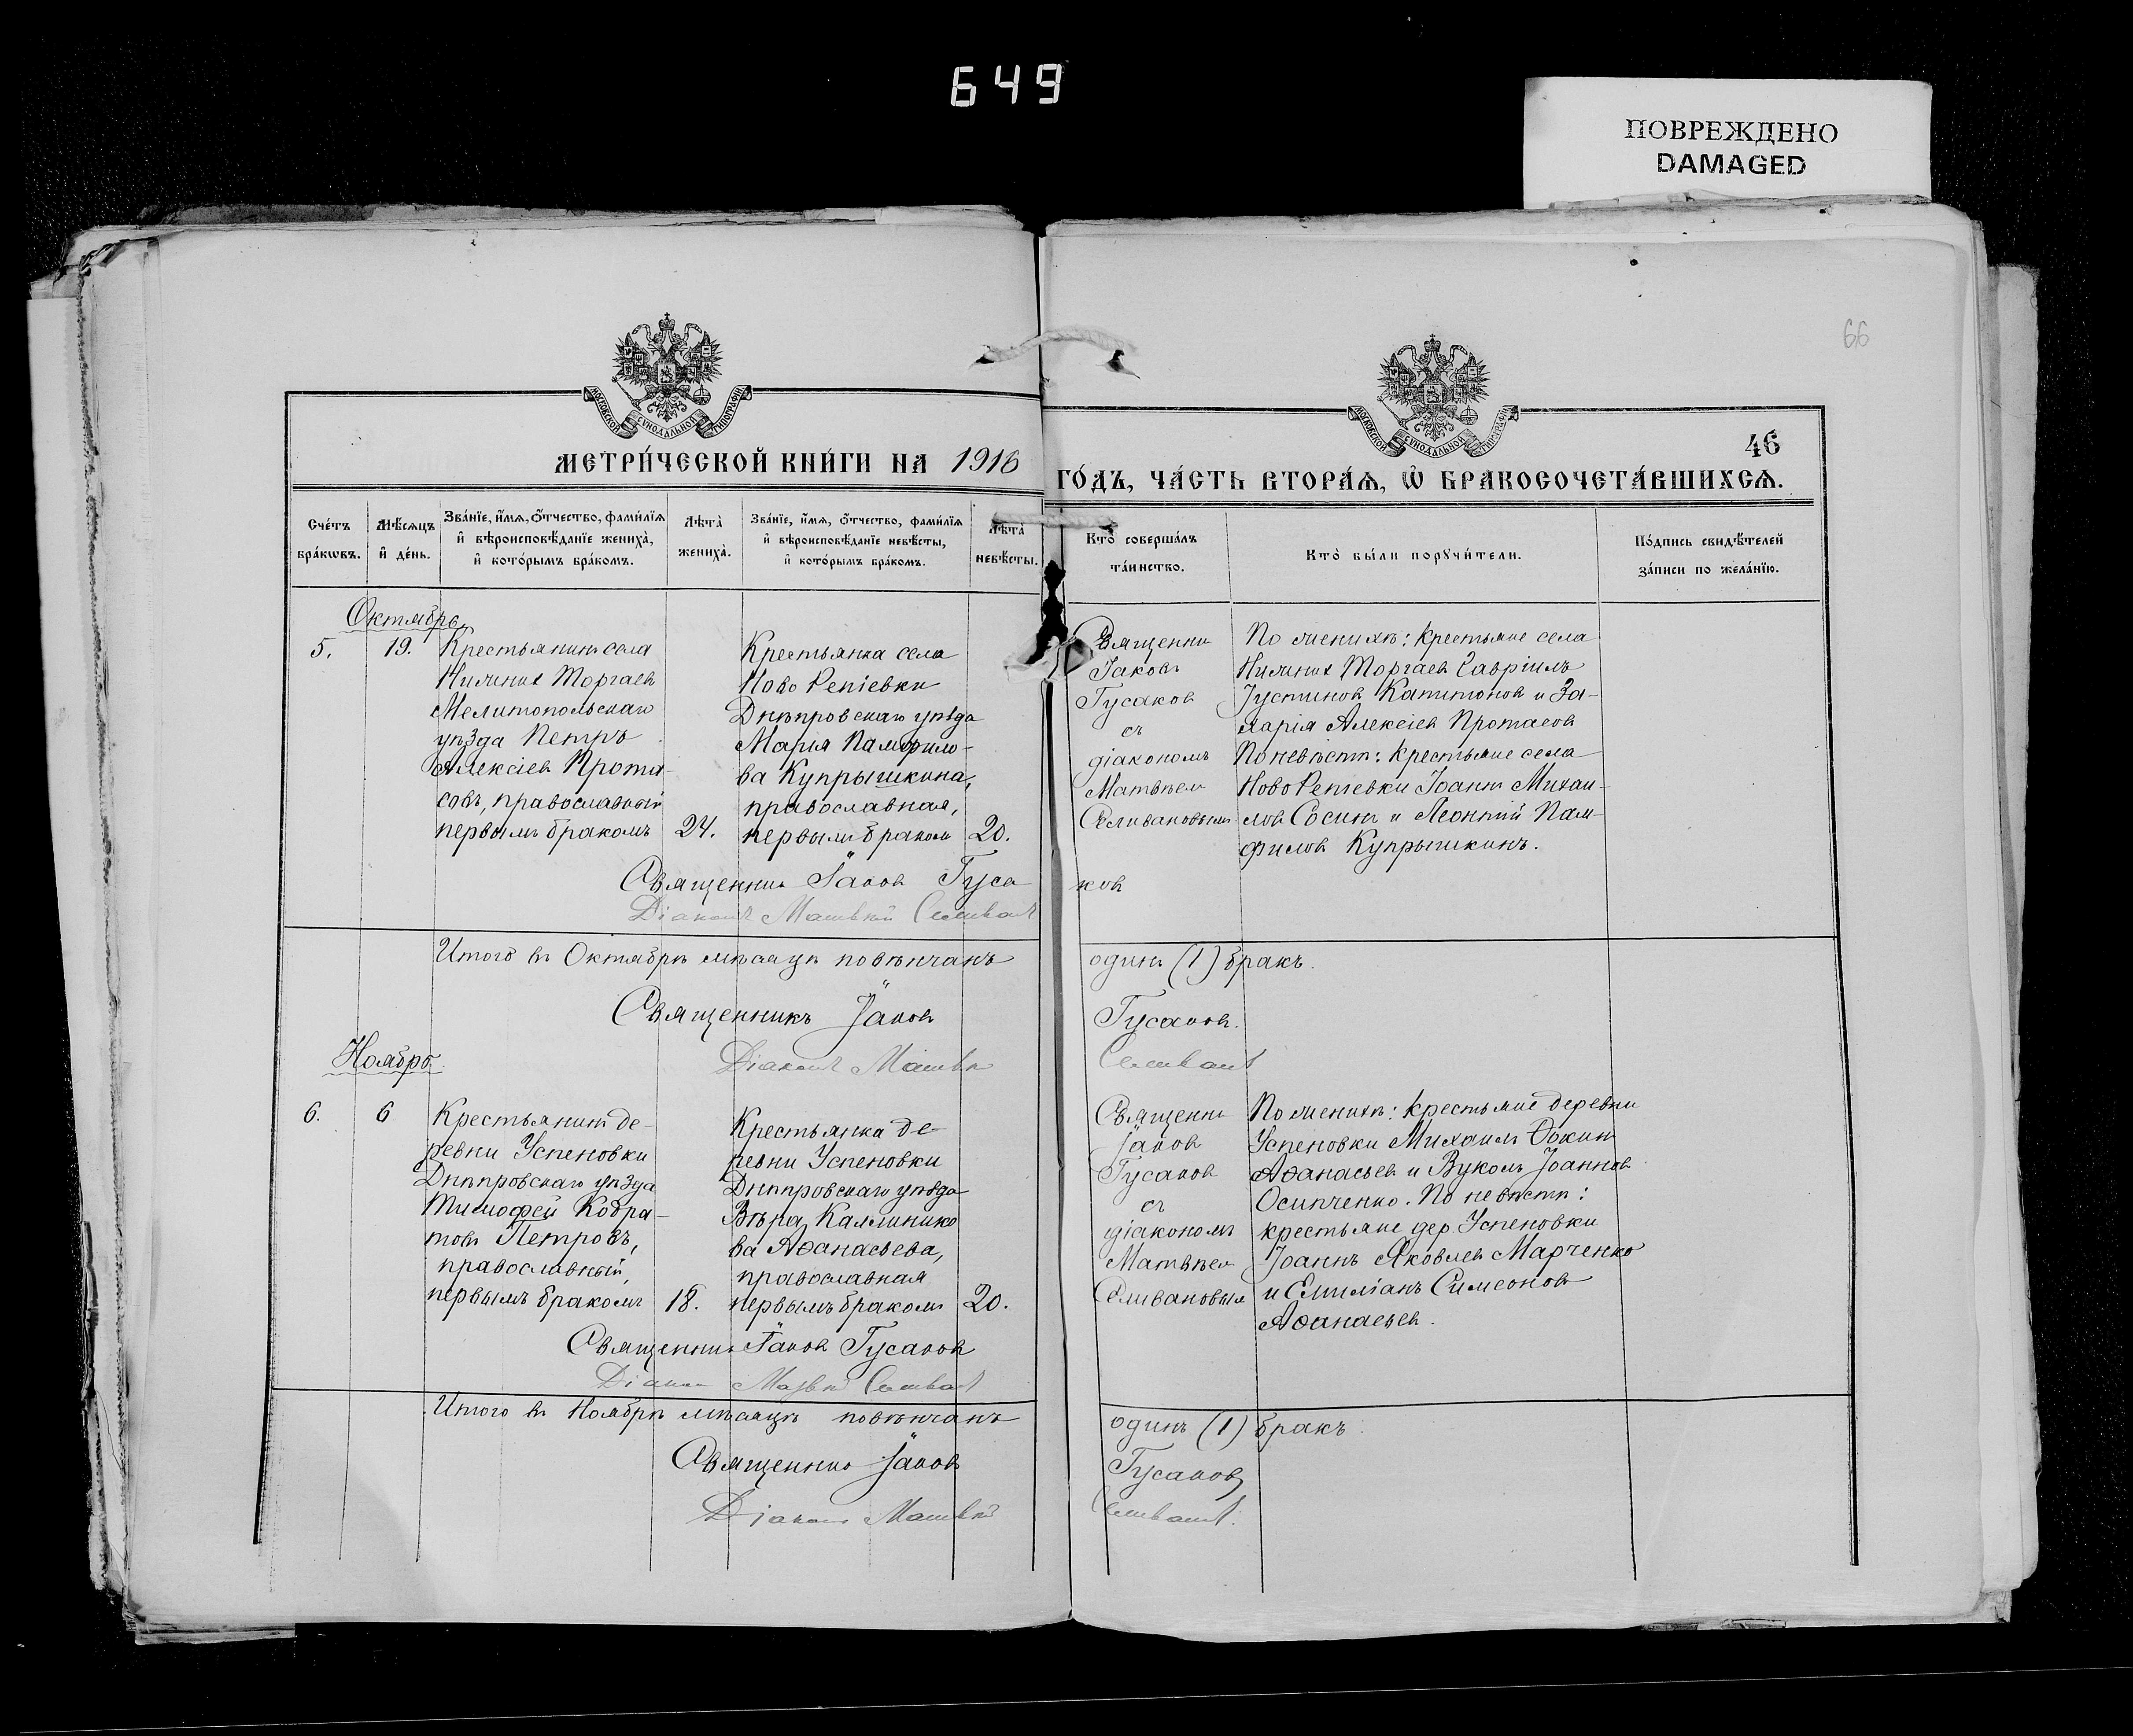 649
ПОВРЕЖДЕНО
DAMAGED
66
46
МОСКОВСКОЙ СѴНОДАЛЬНОЙ ТИПОГРАФІИ
МОСКОВСКОЙ СѴНОДАЛЬНОЙ ТИПОГРАФІИ
МЕТРИ́ЧЕСКОЙ КНИ́ГИ НА 1916
ГО́ДЪ, ЧА́СТЬ ВТОРА́Ѧ, Ѡ҆ БРАКОСОЧЕТА́ВШИХСѦ.
Сче́тъ
бра́кѡвъ.
Мѣ́сѧцъ
и҆ де́нь.
Зва́нїе, и҆́мѧ, ѻ҆́тчество, фами́лїѧ
и҆ вѣроисповѣ́данїе жениха̀,
и҆ кото́рымъ бра́комъ.
Лѣ́та
жениха̀.
Зва́нїе, и҆́мѧ, ѻ҆́тчество, фами́лїѧ
и҆ вѣроисповѣ́данїе невѣ́сты,
и҆ кото́рымъ бра́комъ.
Лѣ́та
невѣ́сты.
Кто̀ соверша́лъ
та́инство.
Кто̀ бы́ли порꙋчи́тели.
По́дпись свидѣ́телей
за́писи по жела́нїю.
Октябрь
5.
19.
Крестьянинъ села
Нижнихъ Торгаевъ
Мелитопольскаго
уѣзда Петръ
Алексіевъ Прота-
совъ, православный
первымъ бракомъ
24.
Крестьянка села
Ново Репіевки
Днѣпровскаго уѣзда
Марія Памфило-
ва Купрышкина,
православная,
первымъ бракомъ
20.
Священни
Іаковъ
Гусаковъ
съ
діакономъ
Матѳѣем
Селивановымъ
По женихѣ: крестьяне села
Нижнихъ Торгаевъ Гавріилъ
Іустиновъ Капитоновъ и За-
харія Алексіевъ Протасовъ
По невѣстѣ: крестьяне села
Ново Репіевки Іоаннъ Михаи-
ловъ Сосинъ и Леонтій Пам-
филовъ Купрышкинъ.
Священникъ Іаковъ Гуса
ковъ
Діаконъ Матвѣй Селивановъ
Итого въ Октябрѣ мѣсяцѣ повѣнчанъ
одинъ (1) бракъ.
Священникъ Іаковъ
Гусаковъ.
Діаконъ Матвѣй
Селивановъ
Ноябрь
6.
6
Крестьянинъ де-
ревни Успеновки
Днѣпровскаго уѣзда
Тимофей Кодра-
товъ Петровъ,
православный,
первымъ бракомъ
18.
Крестьянка де-
ревни Успеновки
Днѣпровскаго уѣзда
Вѣра Каллинико
ва Аѳанасьева,
православная
первымъ бракомъ
20.
Священни
Іаковъ
Гусаковъ
съ
діакономъ
Матѳѣем
Селивановымъ
По женихѣ: крестьяне деревни
Успеновки Михаилъ Ѳокинъ
Аѳанасьевъ и Вуколъ Іоанновъ
Осипченко. По невѣстѣ:
крестьяне дер. Успеновки
Іоаннъ Яковлевъ Марченко
и Емиліанъ Симеоновъ
Аѳанасьевъ.
Священникъ Іаковъ Гусаковъ
Діаконъ Матвѣй Селивановъ
Итого въ Ноябрѣ мѣсяцѣ повѣнчанъ
одинъ (1) бракъ.
Священникъ Іаковъ
Гусаковъ
Діаконъ Матвѣй
Селивановъ.